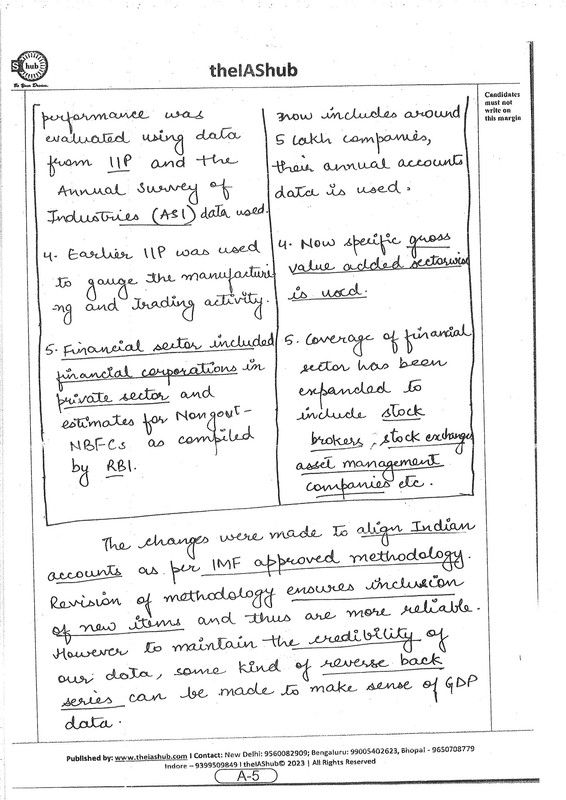 S hub
To Your Decision.
theIAShub
Candidates
must not
write on
this margin
performance was
evaluated using data
from IIP and the
Annual Survey of
Industries (ASI) data used.
4. Earlier IIP was used
to gauge the manufacturi
ng and trading activity.
5. Financial sector included
financial corporations in
private sector and
estimates for Nongovt-
NBFCs as compiled
by RBI.
now includes around
5 lakh companies,
their annual accounts
data is used.
4. Now specific gross
value added sectorwise
is used.
5. Coverage of financial
sector has been
expanded to
include stock
brokers, stock exchanges
asset management
companies etc.
The changes were made to align Indian
accounts as per IMF approved methodology.
Revision of methodology ensures inclusion
of new items and thus are more reliable.
However to maintain the credibility of
our data, some kind of reverse back
series can be made to make sense of GDP
data.
Published by: www.theiashub.com I Contact: New Delhi: 9560082909; Bengaluru: 99005402623, Bhopal - 9650708779
Indore – 9399509849 I theIAShub© 2023 | All Rights Reserved
A-5